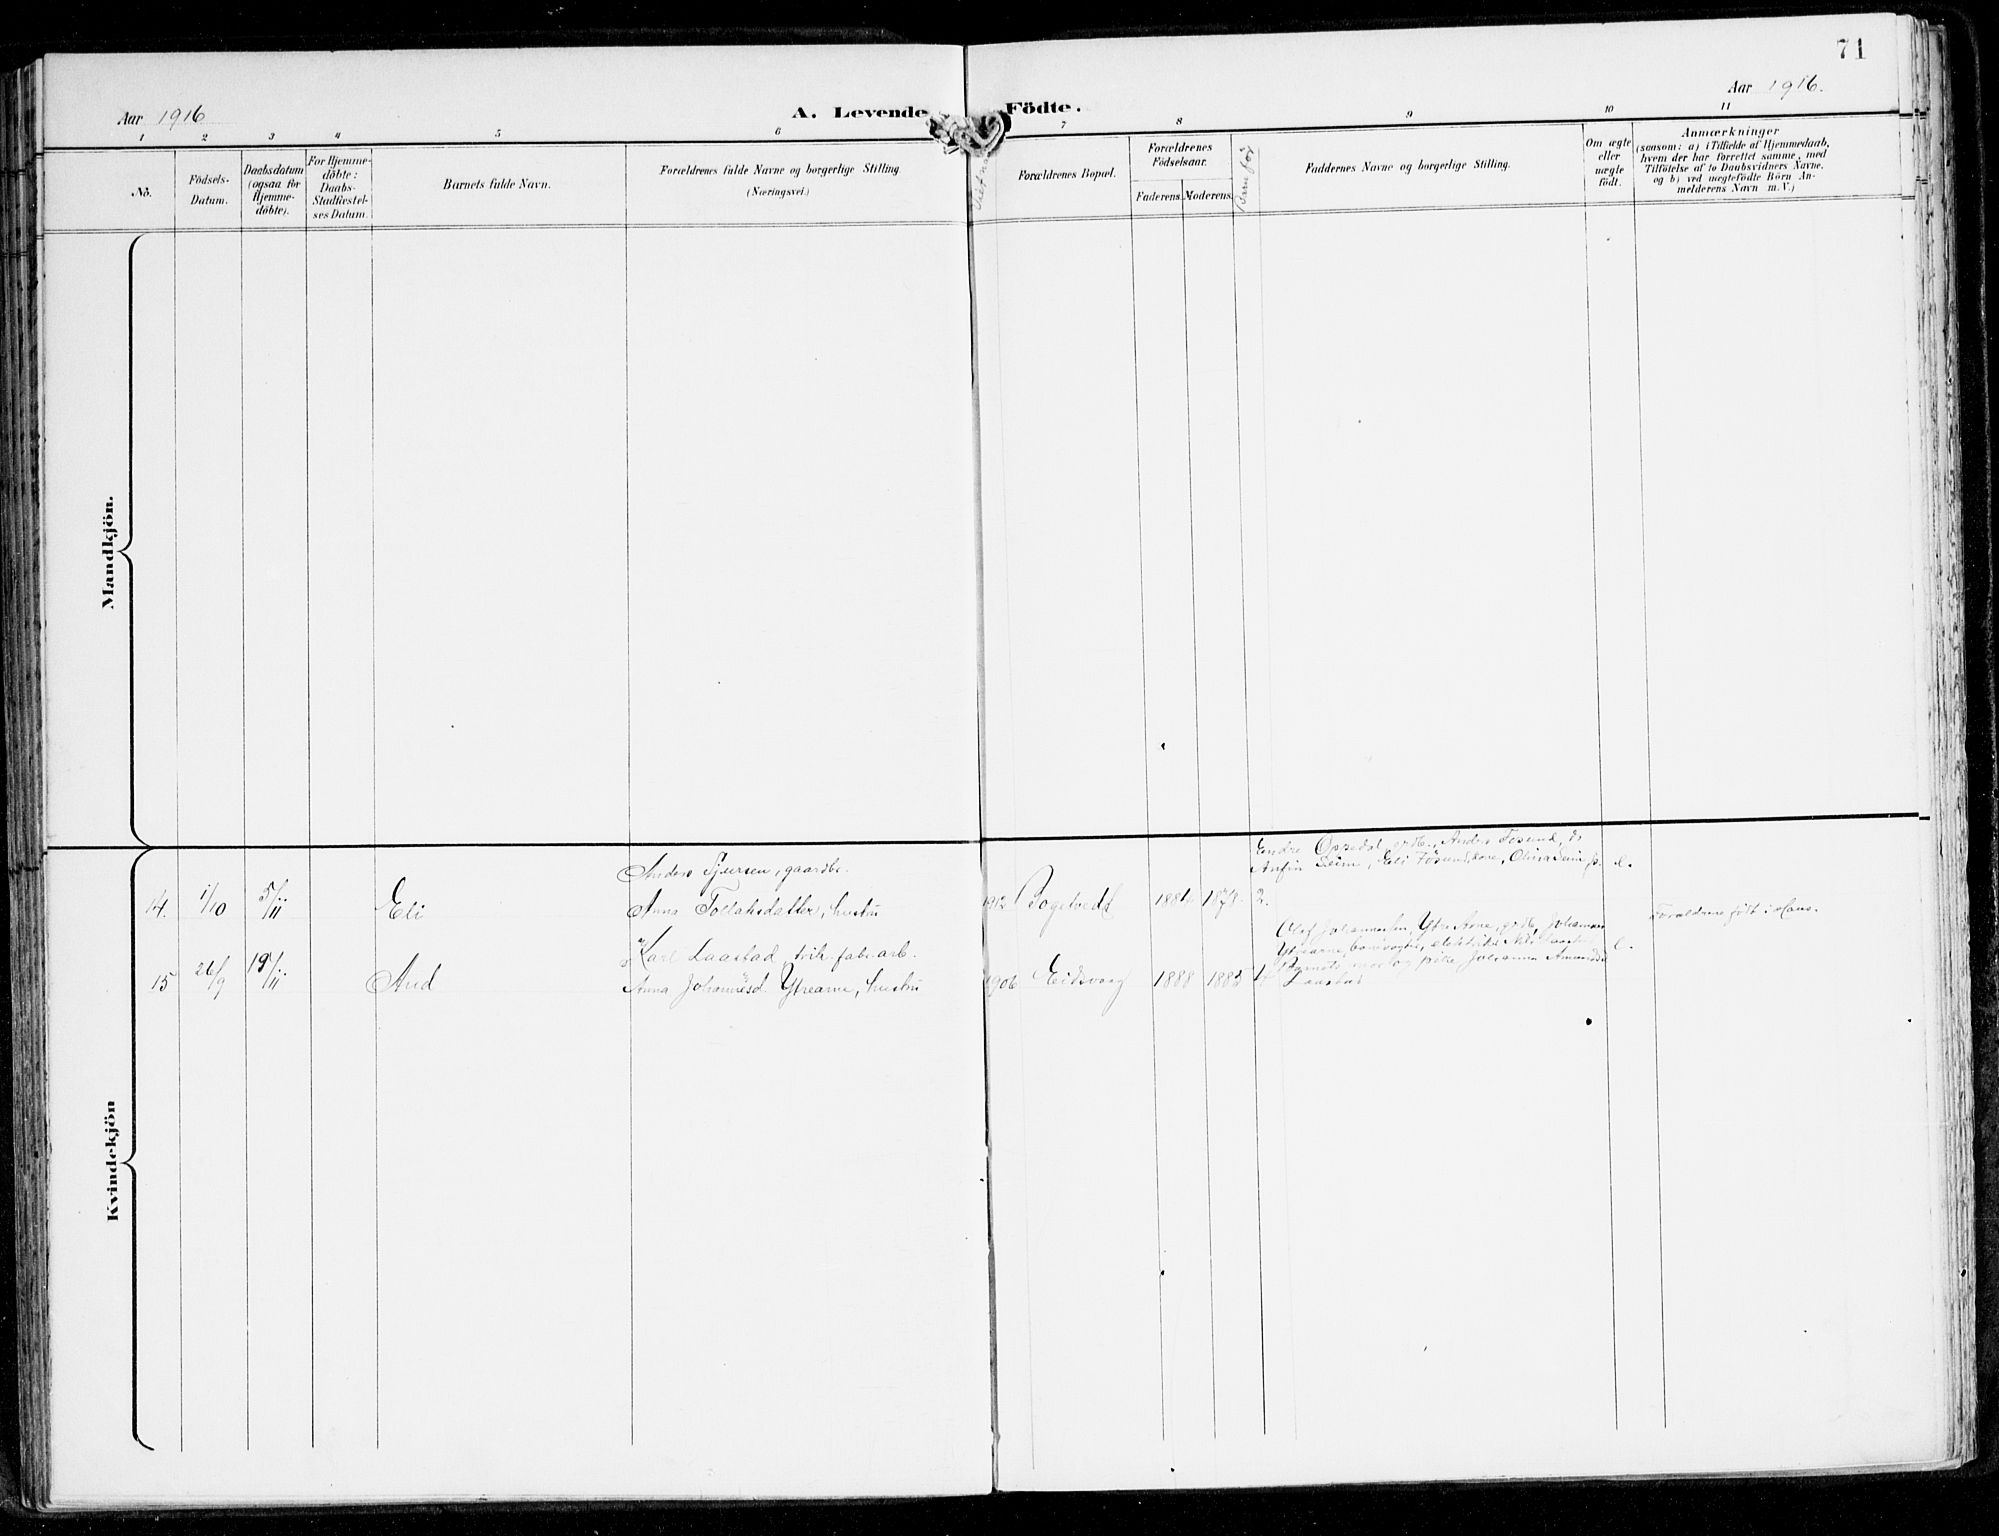 71
Aar 1916
A. Levende Födte.
Aar 1916.
1 2 3 4 5 6 7 8 9 10 11
No.
Födsels-
Datum.
Daabsdatum
(ogsaa for
Hjemme-
døbte).
For Hjemme-
døbte:
Daabs-
Stadfæstel-
ses Datum.
Barnets fulde Navn.
Forældrenes fulde Navne og borgerlige Stilling
(Næringsvei.)
Forældrenes Bopæl.
Forældrenes
Födselsaar.
Faderens. Moderens.
Faddernes Navne og borgerlige Stilling.
Om ægte
eller
uægte
födt.
Anmærkninger
(saasom: a) i Tilfælde af Hjemmedaab,
hvem der har forrettet samme, med
Tilföielse af to Daabsvidners Navne.
og b) ved uegtefödte Börn An-
melderens Navn m. V.)
Mandkjön.
Kvindekjön
14. 1/10 5/11 Eli
Anders Sjursen, gaardbr.
Anna Tollaksdatter, hustru
1912 Bogetvedt 1878 2.
Endre Oppedal, grdb., Anders Fosund, ds
Anfin Seim, Eli
e.
Forældrene födt i Haus.
15 26/9 19/11 Aud
Karl Laastad, trik. fabr. arb.
Anna Johannesd. Ytrearne, hustru
1906 Eidsvaag 1888 1883
Olaf Johannessen, Ytre Arne, grdb., Johannes
Ytrearne, banevogter,
Barnets mor og Johanna
Laastad
e.